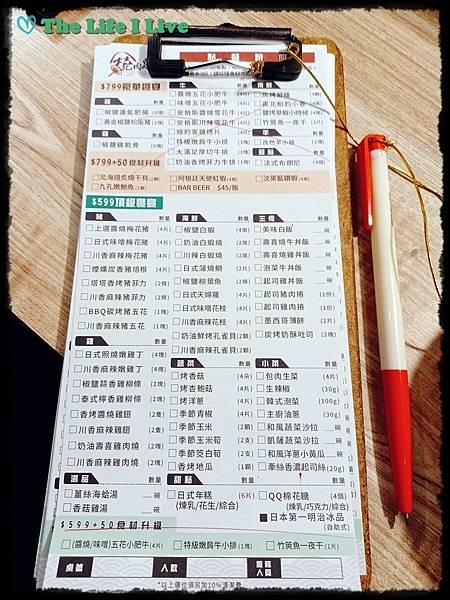 The Life I Live
$799豪華饗宴
豬 數量
椒鹽湯氣肥腸
黃金椒鹽松阪豬
雞 數量
椒鹽雞軟骨
牛 數量
醬燒五花小肥牛
味噌五花小肥牛
安格斯醬燒雪花牛
特級嫩肩牛小排
大滿足厚切牛排
奶油香烤菲力牛排
海鮮
竹筴魚一夜干
法式布朗尼
$799+50食材升級
北海道炙燒干貝
九孔嫩鮑魚
阿根廷天使紅蝦
BAR BEER $45/瓶
汶萊藍鑽蝦
$599頂級饗宴
豬 數量
上選醬燒梅花豬 (4片)
日式味噌梅花豬 (4片)
川香麻辣梅花豬 (4片)
煙燻炭香豬培根 (4片)
塔塔香烤豬菲力 (2條)
川香麻辣豬菲力 (2條)
BBQ碳烤豬五花 (1塊)
川香麻辣豬五花 (1塊)
雞 數量
日式照燒嫩雞丁 (4塊)
川香麻辣嫩雞丁 (4塊)
椒鹽蒜香雞柳條 (2塊)
泰式檸香雞柳條 (2塊)
香烤醬燒雞翅 (2隻)
川香麻辣雞翅 (2隻)
奶油壽喜雞肉燒 (2塊)
川香麻辣雞肉燒 (2塊)
湯品 數量
薑絲海蛤湯 碗
香菇雞湯 碗
海鮮 數量
椒鹽白蝦 (4尾)
奶油白蝦蝦 (4尾)
川辣白蝦蝦 (4尾)
日式蒲燒鯛 (2片)
椒鹽柳葉魚 (2條)
日式天婦羅 (4片)
日式味噌花枝 (4片)
川香麻辣花枝 (4片)
奶油鮮烤孔雀貝 (2顆)
川香麻辣孔雀貝 (2顆)
蔬菜 數量
烤香菇 (4朵)
烤杏鮑菇 (4片)
烤洋蔥 (4片)
季節青椒 (4片)
季節玉米 (2顆)
季節玉米筍 (2支)
季節茭白筍 (2支)
香烤地瓜 (1顆)
甜點 數量
日式年糕 (6片)
(煉乳/花生/綜合)
主食 數量
美味白飯 碗
壽喜燒牛丼飯 碗
壽喜燒雞丼飯 碗
泡菜牛丼飯 碗
起司雞丼飯 碗
起司豬肉捲 (1份)
起司雞肉捲 (1份)
墨西哥薄餅 (2片)
炭烤奶酥吐司 (2片)
小菜 數量
包肉生菜 (4片)
生辣椒 (30g)
韓式泡菜 (100g)
主廚油蔥 (30g)
和風蔬菜沙拉 碗
凱薩蔬菜沙拉 碗
和風洋蔥小黃瓜 碗
牽絲香濃起司絲 (20g)
QQ棉花糖 (4個)
(煉乳/巧克力/綜合)
日本第一明治冰品
(自助式)
$599+50食材升級
(醬燒/味噌)五花小肥牛(4片)
特級嫩肩牛小排 (1塊)
竹筴魚一夜干 (1片)
桌號
人數
服務人員
*以上價位須另加10%清潔費